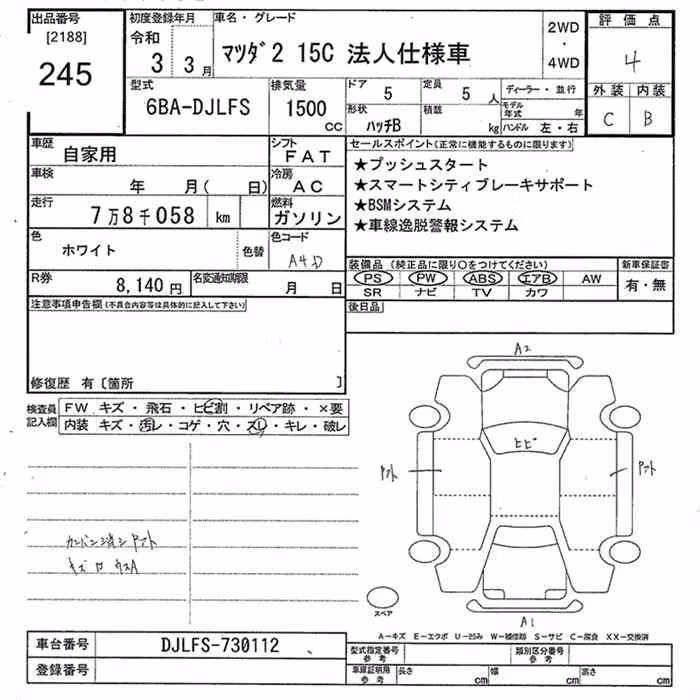 出品番号
[2188]
245
初度登録年月
令和
3 3月
車名・グレード
マツダ2 15C 法人仕様車
2WD
・
4WD
評価点
4
外装 内装
C B
型式
6BA-DJLFS
排気量
1500
CC
ドア
5
定員
5 人
形状
ハッチB
積載
kg
ディーラー・並行
モデル年式 年
ハンドル 左・右
車歴
自家用
シフト
FAT
車検
年 月( 日)
冷房
AC
走行
7万8千058 km
燃料
ガソリン
色
ホワイト
色替
色コード
A4D
R券
8,140円
名変通知期限
月 日
セールスポイント(正常に機能するものに限ります)
★プッシュスタート
★スマートシティブレーキサポート
★BSMシステム
★車線逸脱警報システム
装備品(純正品に限り○をつけてください)
PS PW ABS エアB AW
SR ナビ TV カワ
新車保証書
有・無
後日品
注意事項申告欄(不具合内容等は具体的に記入して下さい)
修復歴 有〔箇所 〕
検査員
記入欄
FW キズ・飛石・ヒビ割・リペア跡・×要
内装 キズ・汚レ・コゲ・穴・スレ・キレ・破レ
A2
ヒビ
アト
アト
カンバン消シ アト
スペア
A1
A-キズ E-エクボ U-凹み W-補修跡 S-サビ C-腐食 XX-交換済
車台番号
DJLFS-730112
登録番号
型式指定番号
参考
類別区分番号
参考
車庫証明用
参考
長さ cm
幅 cm
高さ cm